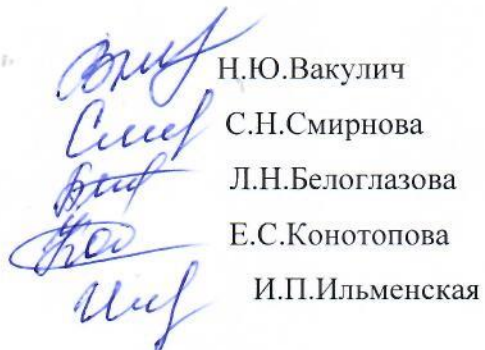 Н.Ю.Вакулич
С.Н.Смирнова
Л.Н.Белоглазова
Е.С.Конотопова
И.П.Ильменская